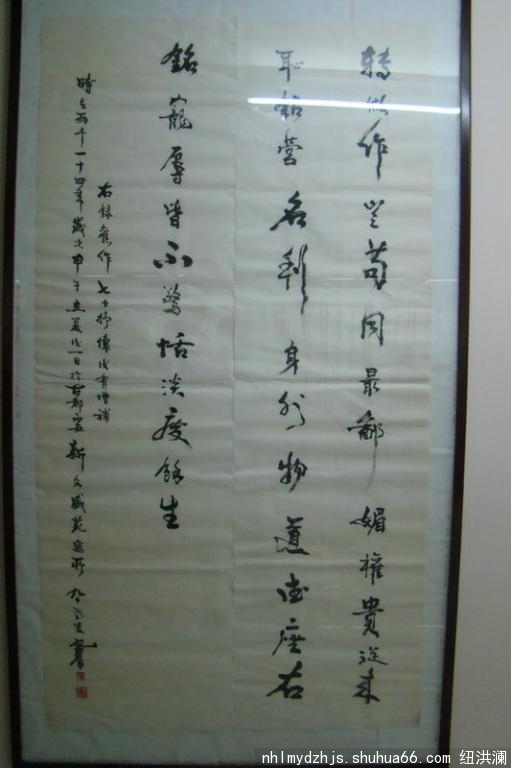 轉做作豈苟同最鄙媚權貴從來
恥鉆營名利身外物道德座右
銘寵辱皆不驚恬淡度餘生
右錄舊作七十抒懷後有增補
時在兩千一十四年歲次甲午立夏後一日於古都 新文盛苑寓所
nhlmydzhjs.shuhua66.com 纽洪澜